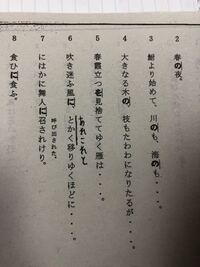 2 春の夜。
3 鮒より始めて、川のも、海のも・・・・。
4 大きなる木の、枝もたわわになりたるが・・・・。
5 春霞立つを見捨ててゆく雁は・・・・。
あれこれと
6 吹き迷ふ風に、とかく移りゆくほどに・・・・。
呼び出された。
7 にはかに舞人に召されけり。
8 食ひに食ふ。